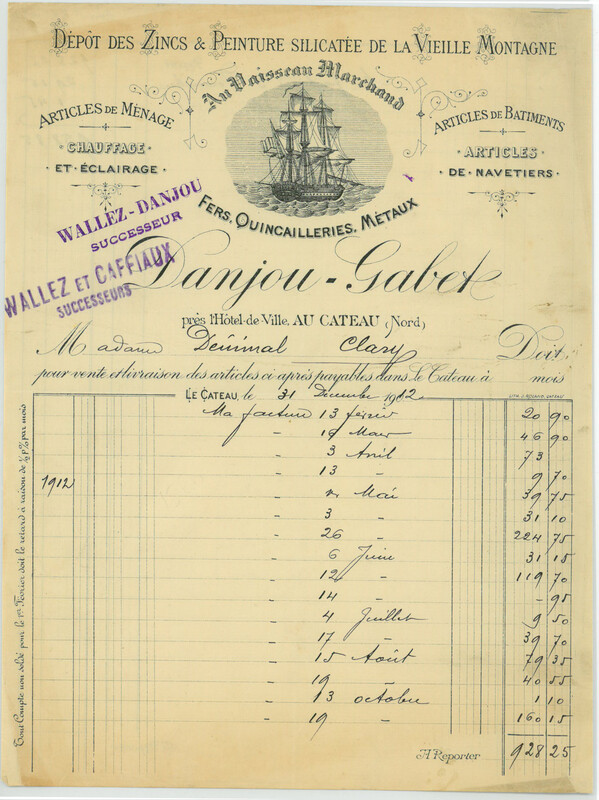 DÉPÔT DES ZINCS & PEINTURE SILICATÉE DE LA VIEILLE MONTAGNE
Au Vaisseau Marchand
ARTICLES DE MÉNAGE
· CHAUFFAGE ·
ET ÉCLAIRAGE ·
ARTICLES DE BATIMENTS
· ARTICLES ·
· DE NAVETIERS ·
FERS, QUINCAILLERIES, MÉTAUX
WALLEZ-DANJOU
SUCCESSEUR
WALLEZ ET CAFFIAUX
SUCCESSEURS
Danjou-Gabet
près l'Hôtel-de-Ville, AU CATEAU (Nord)
Madame Dénimal Clary Doit:
pour vente et livraison des articles ci-après payables dans Le Cateau à mois
LE CATEAU, le 31 Decembre 1912
Ma facture 13 février 20 90
Mars 46 90
3 Avril 73
13 - 9 70
1912
Mai 39 75
3 - 31 10
26 - 224 75
6 Juin 31 15
12 - 119 70
14 - - 95
4 Juillet 9 50
17 - 39 70
15 Août 79 35
19 - 40 55
13 octobre 1 10
19 - 160 15
A Reporter 928 25
Tout Compte non soldé pour le 1er Février doit le retard à raison de ½ p% par mois